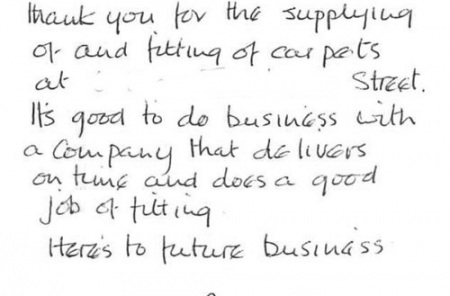 thank you for the supplying
of and fitting of carpets
at Street.
It's good to do business with
a Company that delivers
on time and does a good
job of fitting
Here's to future business